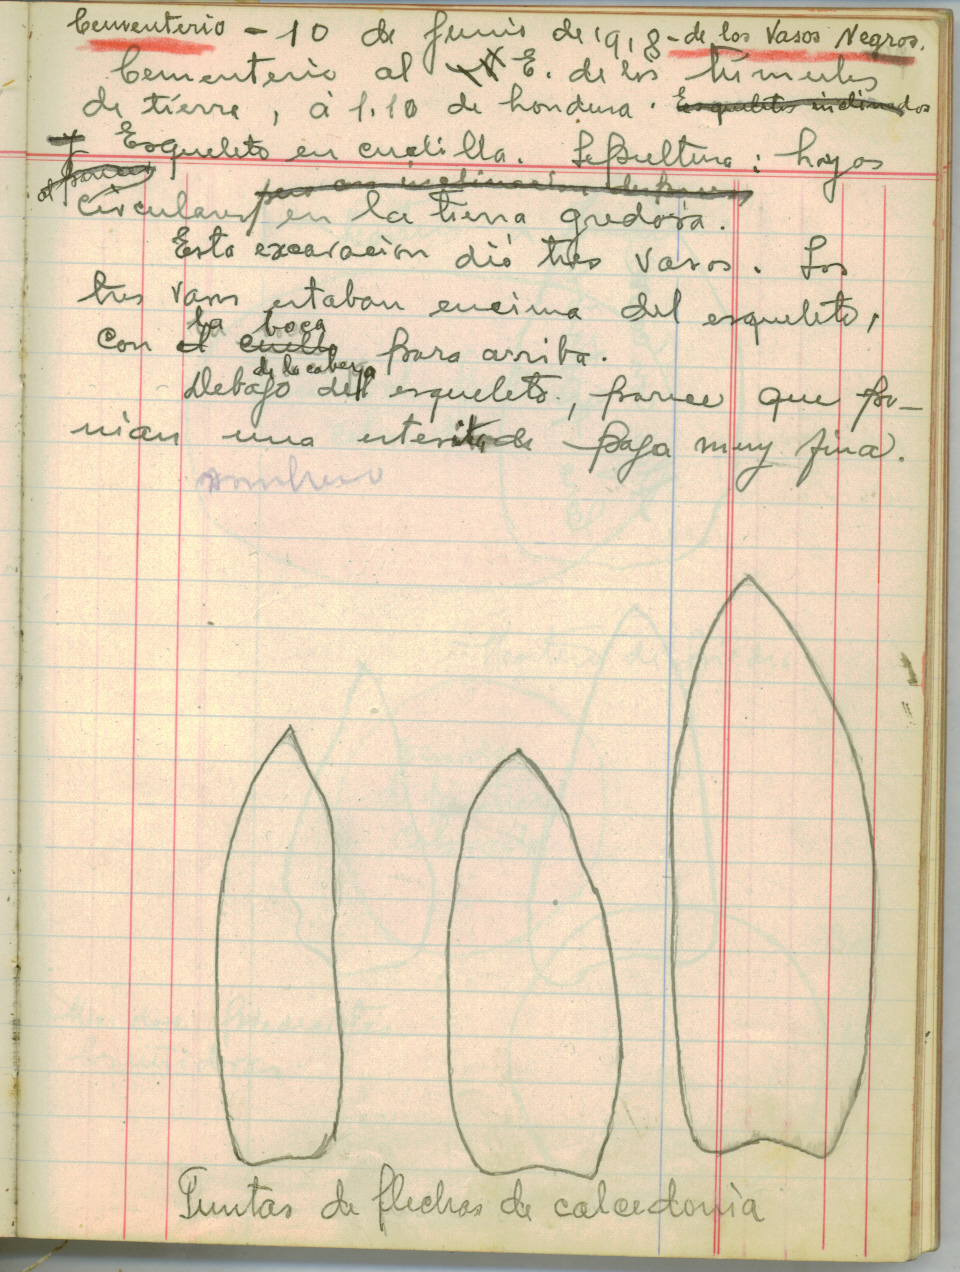 Cementerio - 10 de Junio de 1918 - de los Vasos Negros.
Cementerio al E. de los túmulos
de tierra, á 1.10 de hondura. Esqueletos inclinados
Esqueleto en cuclilla. Sepultura: hoyos
pero con inclinacion
circulares en la tierra gredosa.
Esta excavación dió tres vasos. Los
tres vasos estaban encima del esqueleto,
la boca
con el cuello para arriba.
de la cabeza
Debajo del esqueleto, parece que po-
nian una esterita de paja muy fina.
sombrero
Puntas de flechas de calcedonia